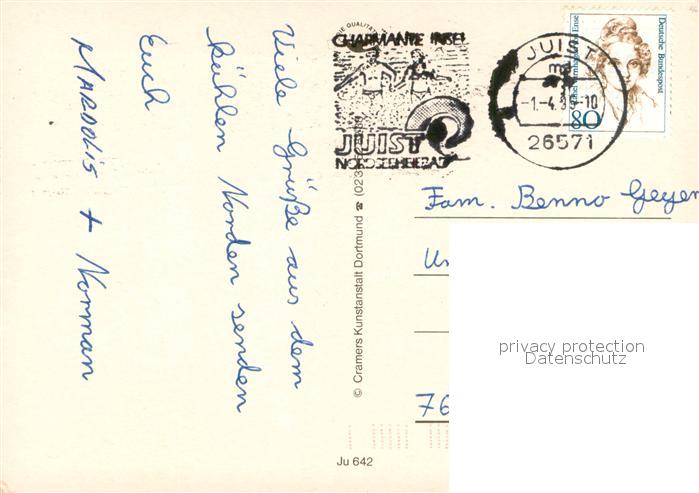 Viele Grüße aus dem
kühlen Norden senden
Euch
MARDLIS + Norman
© Cramers Kunstanstalt Dortmund ☎ (023
Ju 642
CHARMANTE INSEL
JUIST
NORDSEEHEILBAD
JUIST
26571
Deutsche Bundespost
80
Fam. Benno Geyer
76
privacy protection
Datenschutz